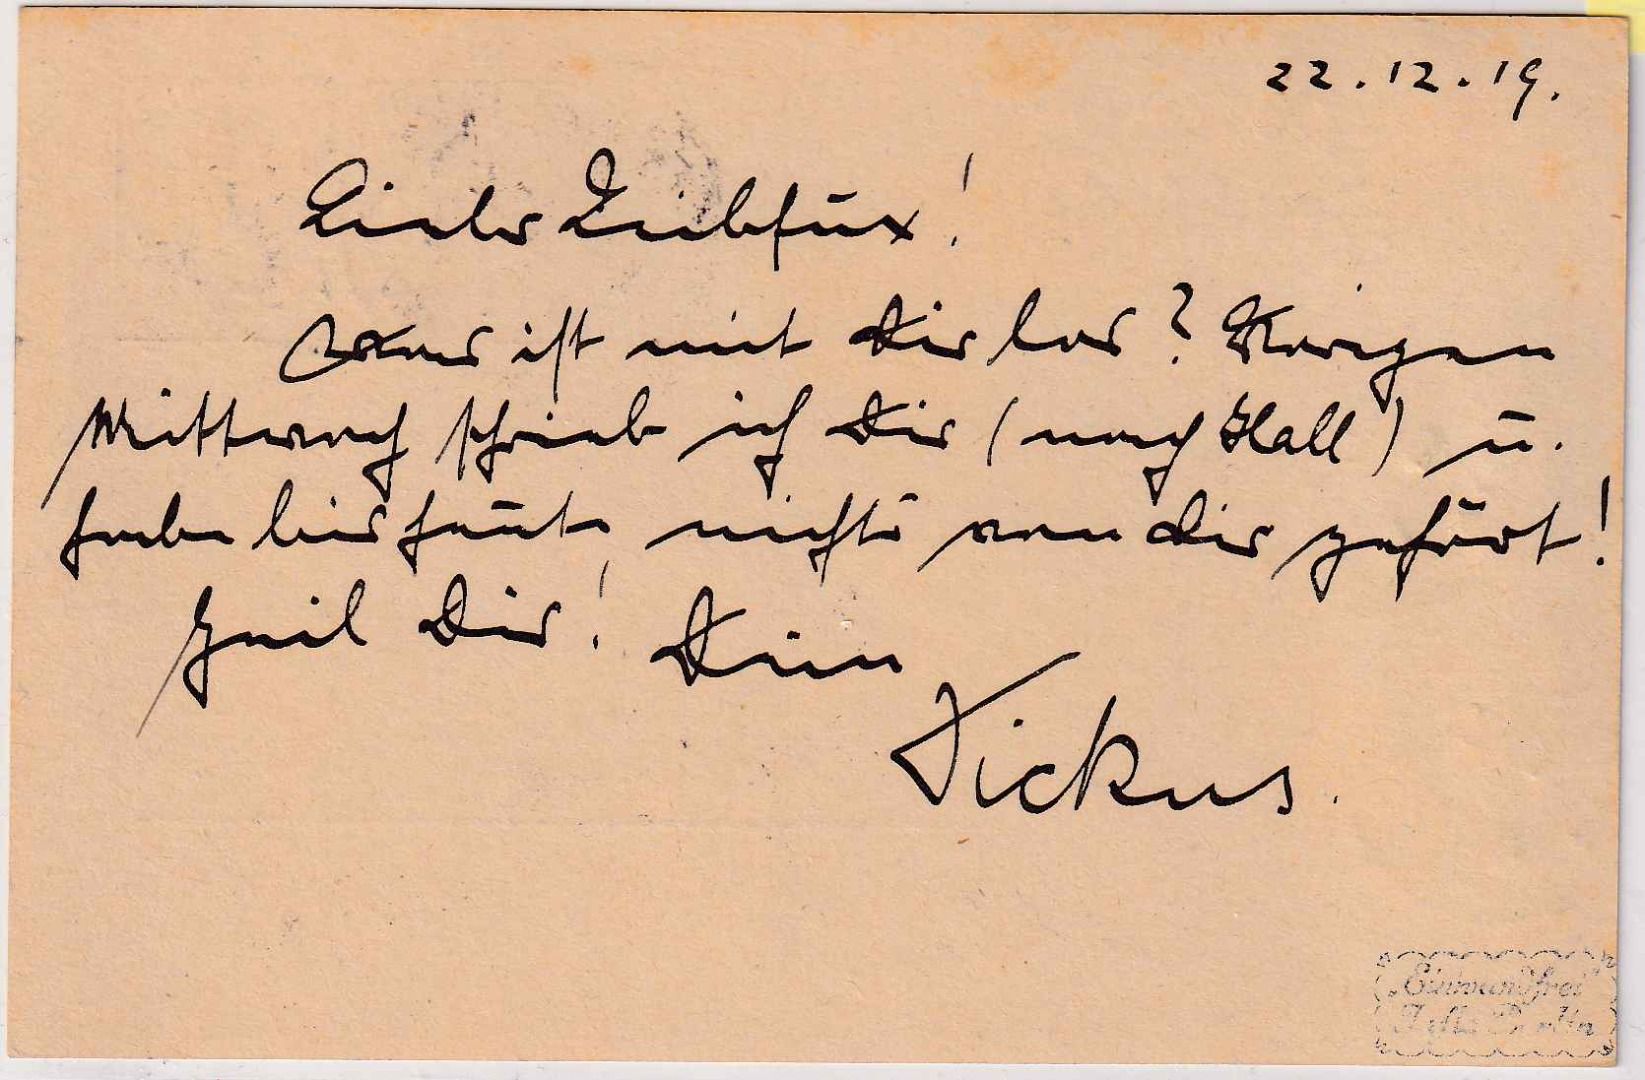 22.12.19.
Lieber Leibfux!
Was ist mit Dir los? Vorigen
Mittwoch schrieb ich Dir (nach Hall) u.
habe bis heute nichts von Dir gehört!
Heil Dir! Dein
Dickus.
"Einwandfrei"
Berlin